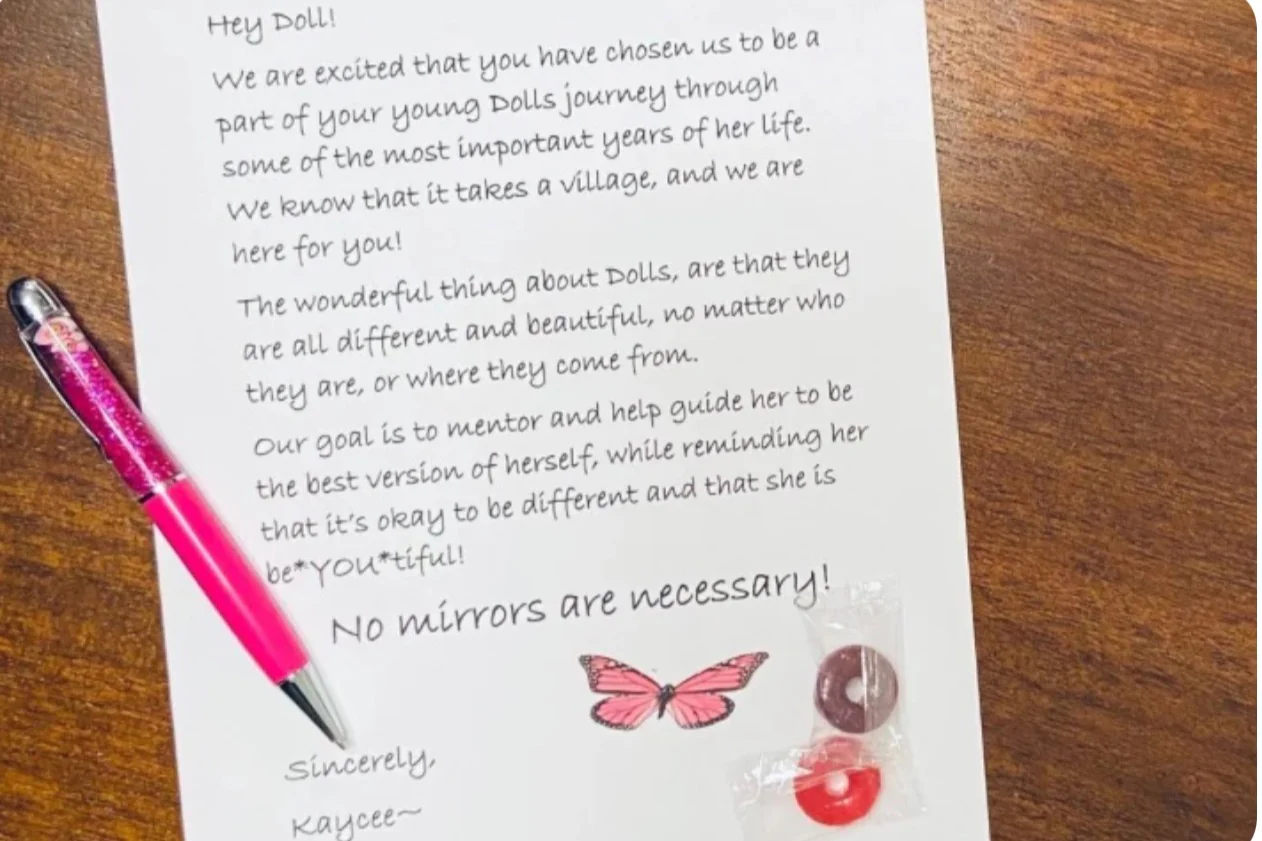 Hey Doll!
We are excited that you have chosen us to be a
part of your young Dolls journey through
some of the most important years of her life.
We know that it takes a village, and we are
here for you!
The wonderful thing about Dolls, are that they
are all different and beautiful, no matter who
they are, or where they come from.
Our goal is to mentor and help guide her to be
the best version of herself, while reminding her
that it's okay to be different and that she is
be*YOU*tiful!
No mirrors are necessary!
Sincerely,
Kaycee~